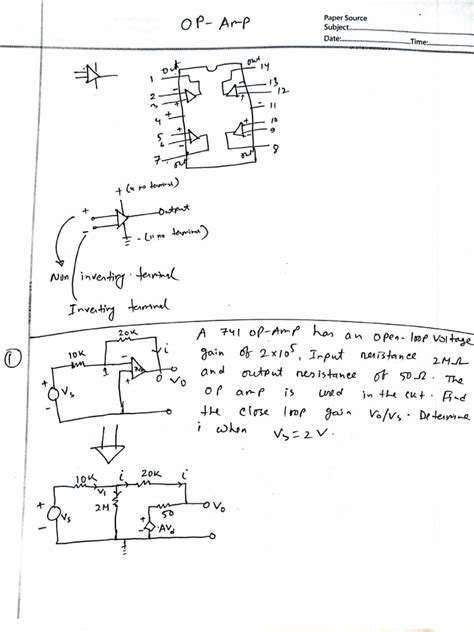 OP-Amp
Paper Source
Subject
Date: Time:
out out
1 14
2 13
3 12
4 11
5 10
6 9
7 8
out out
+ (4 no terminal)
+ Output
-
- (11 no terminal)
Non inverting terminal
Inverting terminal
1
A 741 OP-Amp has an open-loop voltage
gain of 2x10⁵, Input resistance 2MΩ
and output resistance of 50Ω. The
OP amp is used in the ckt. Find
the close loop gain Vo/Vs. Determine
i when Vs = 2V.
20K
10K 1 i
+ Vs - 0 Vo
10K i 20K i
V1
+ Vs - 2M 50 Vo
+ - AVd